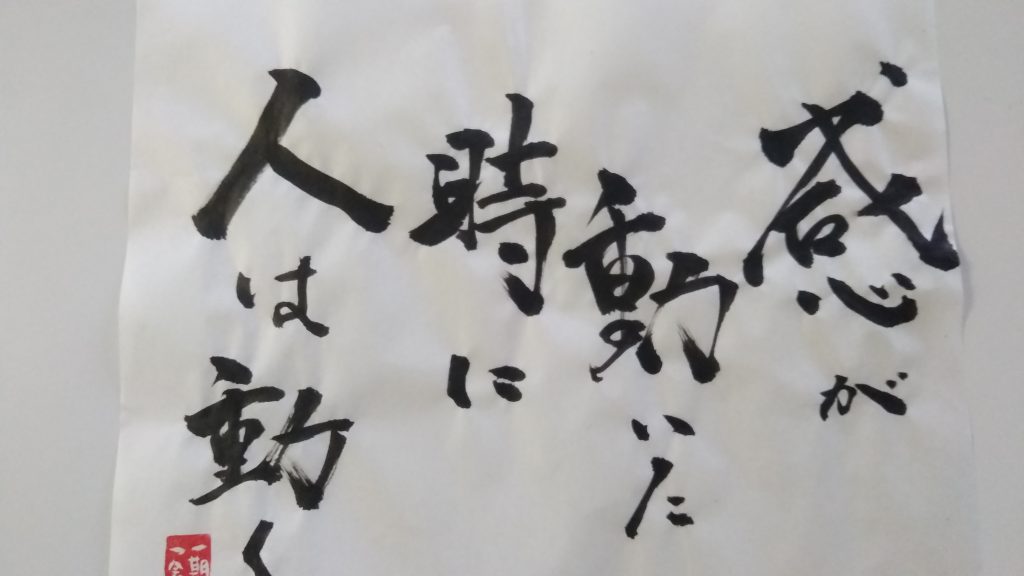 感が
動いた
時に
人は動く
一期
一会